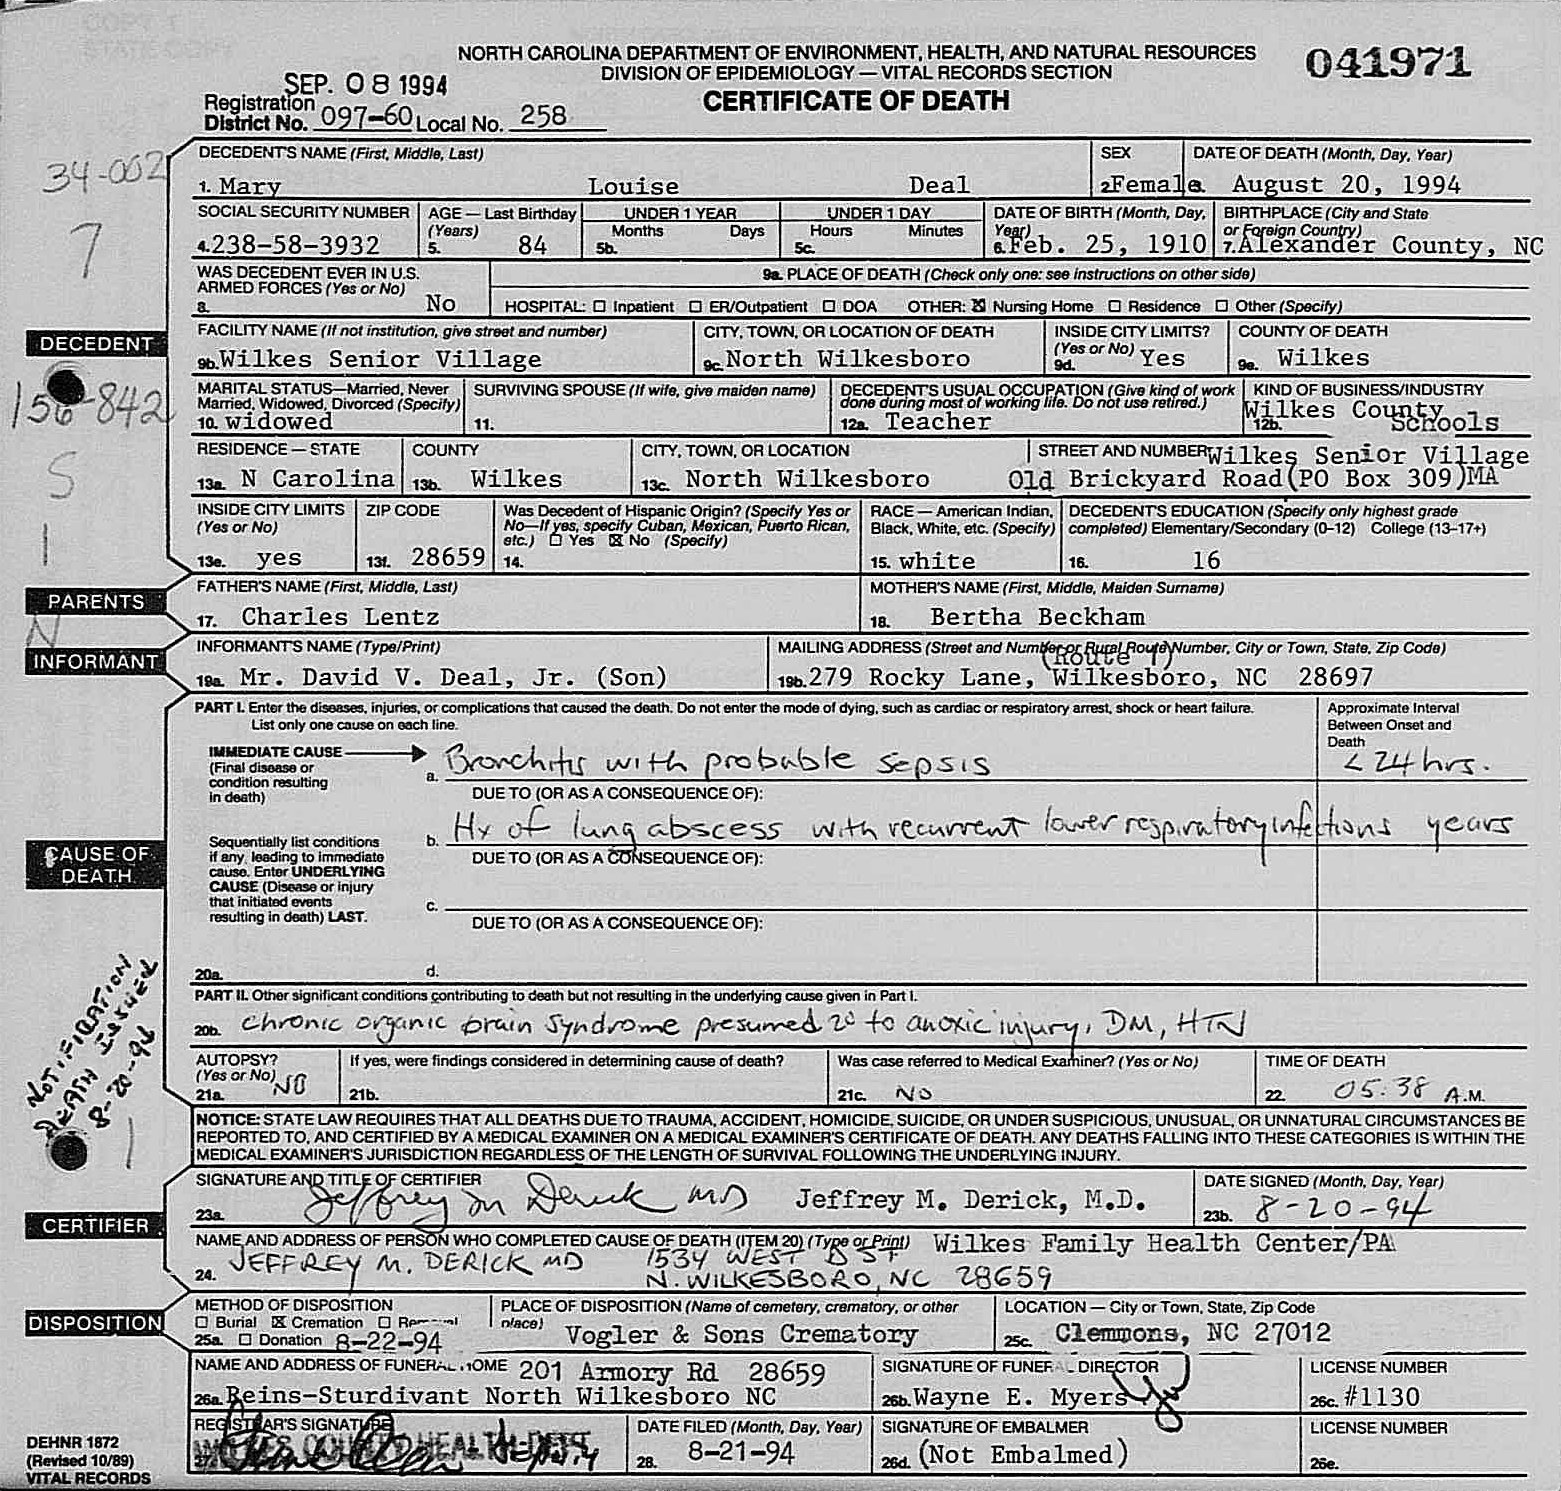 COPY 1
STATE COPY
NORTH CAROLINA DEPARTMENT OF ENVIRONMENT, HEALTH, AND NATURAL RESOURCES
DIVISION OF EPIDEMIOLOGY — VITAL RECORDS SECTION
CERTIFICATE OF DEATH
041971
SEP. 08 1994
Registration
District No. 097-60 Local No. 258
34-002
7
DECEDENT'S NAME (First, Middle, Last) SEX DATE OF DEATH (Month, Day, Year)
1. Mary Louise Deal 2. Female 3. August 20, 1994
SOCIAL SECURITY NUMBER AGE — Last Birthday (Years) UNDER 1 YEAR Months Days UNDER 1 DAY Hours Minutes DATE OF BIRTH (Month, Day, Year) BIRTHPLACE (City and State or Foreign Country)
4. 238-58-3932 5. 84 5b. 5c. 6. Feb. 25, 1910 7. Alexander County, NC
WAS DECEDENT EVER IN U.S. ARMED FORCES (Yes or No) 9a. PLACE OF DEATH (Check only one: see instructions on other side)
8. No HOSPITAL: ☐ Inpatient ☐ ER/Outpatient ☐ DOA OTHER: ☒ Nursing Home ☐ Residence ☐ Other (Specify)
DECEDENT
FACILITY NAME (If not institution, give street and number) CITY, TOWN, OR LOCATION OF DEATH INSIDE CITY LIMITS? (Yes or No) COUNTY OF DEATH
9b. Wilkes Senior Village 9c. North Wilkesboro 9d. Yes 9e. Wilkes
156-842
MARITAL STATUS—Married, Never Married, Widowed, Divorced (Specify) SURVIVING SPOUSE (If wife, give maiden name) DECEDENT'S USUAL OCCUPATION (Give kind of work done during most of working life. Do not use retired.) KIND OF BUSINESS/INDUSTRY
10. widowed 11. 12a. Teacher 12b. Wilkes County Schools
RESIDENCE — STATE COUNTY CITY, TOWN, OR LOCATION STREET AND NUMBER Wilkes Senior Village
13a. N Carolina 13b. Wilkes 13c. North Wilkesboro Old Brickyard Road (PO Box 309) MA
5
1
INSIDE CITY LIMITS (Yes or No) ZIP CODE Was Decedent of Hispanic Origin? (Specify Yes or No—If yes, specify Cuban, Mexican, Puerto Rican, etc.) ☐ Yes ☒ No (Specify) RACE — American Indian, Black, White, etc. (Specify) DECEDENT'S EDUCATION (Specify only highest grade completed) Elementary/Secondary (0-12) College (13-17+)
13e. yes 13f. 28659 14. 15. white 16. 16
PARENTS
FATHER'S NAME (First, Middle, Last) MOTHER'S NAME (First, Middle, Maiden Surname)
17. Charles Lentz 18. Bertha Beckham
N
INFORMANT
INFORMANT'S NAME (Type/Print) MAILING ADDRESS (Street and Number or Rural Route Number, City or Town, State, Zip Code)
(Route 1)
19a. Mr. David V. Deal, Jr. (Son) 19b. 279 Rocky Lane, Wilkesboro, NC 28697
PART I. Enter the diseases, injuries, or complications that caused the death. Do not enter the mode of dying, such as cardiac or respiratory arrest, shock or heart failure.
List only one cause on each line.
Approximate Interval Between Onset and Death
IMMEDIATE CAUSE (Final disease or condition resulting in death)
a. Bronchitis with probable sepsis < 24 hrs.
DUE TO (OR AS A CONSEQUENCE OF):
b. Hx of lung abscess with recurrent lower respiratory infections years
DUE TO (OR AS A CONSEQUENCE OF):
Sequentially list conditions if any, leading to immediate cause. Enter UNDERLYING CAUSE (Disease or injury that initiated events resulting in death) LAST.
c.
DUE TO (OR AS A CONSEQUENCE OF):
CAUSE OF DEATH
20a. d.
PART II. Other significant conditions contributing to death but not resulting in the underlying cause given in Part I.
20b. chronic organic brain syndrome presumed 2° to anoxic injury, DM, HTN
NOTIFIRATION
DEATH ISSUED
8-20-94
1
AUTOPSY? (Yes or No) If yes, were findings considered in determining cause of death? Was case referred to Medical Examiner? (Yes or No) TIME OF DEATH
21a. NO 21b. 21c. NO 22. 05:38 A.M.
NOTICE: STATE LAW REQUIRES THAT ALL DEATHS DUE TO TRAUMA, ACCIDENT, HOMICIDE, SUICIDE, OR UNDER SUSPICIOUS, UNUSUAL, OR UNNATURAL CIRCUMSTANCES BE
REPORTED TO, AND CERTIFIED BY A MEDICAL EXAMINER ON A MEDICAL EXAMINER'S CERTIFICATE OF DEATH. ANY DEATHS FALLING INTO THESE CATEGORIES IS WITHIN THE
MEDICAL EXAMINER'S JURISDICTION REGARDLESS OF THE LENGTH OF SURVIVAL FOLLOWING THE UNDERLYING INJURY.
CERTIFIER
SIGNATURE AND TITLE OF CERTIFIER DATE SIGNED (Month, Day, Year)
23a. Jeffrey M Derick MD Jeffrey M. Derick, M.D. 23b. 8-20-94
NAME AND ADDRESS OF PERSON WHO COMPLETED CAUSE OF DEATH (ITEM 20) (Type or Print) Wilkes Family Health Center/PA
24. JEFFREY M. DERICK MD 1534 WEST B ST
N. WILKESBORO, NC 28659
DISPOSITION
METHOD OF DISPOSITION PLACE OF DISPOSITION (Name of cemetery, crematory, or other place) LOCATION — City or Town, State, Zip Code
☐ Burial ☒ Cremation ☐ Removal
25a. ☐ Donation 8-22-94 Vogler & Sons Crematory 25c. Clemmons, NC 27012
NAME AND ADDRESS OF FUNERAL HOME 201 Armory Rd 28659 SIGNATURE OF FUNERAL DIRECTOR LICENSE NUMBER
26a. Reins-Sturdivant North Wilkesboro NC 26b. Wayne E. Myers 26c. #1130
REGISTRAR'S SIGNATURE DATE FILED (Month, Day, Year) SIGNATURE OF EMBALMER LICENSE NUMBER
27. COUNTY HEALTH DEPT. 28. 8-21-94 26d. (Not Embalmed) 26e.
DEHNR 1872
(Revised 10/89)
VITAL RECORDS